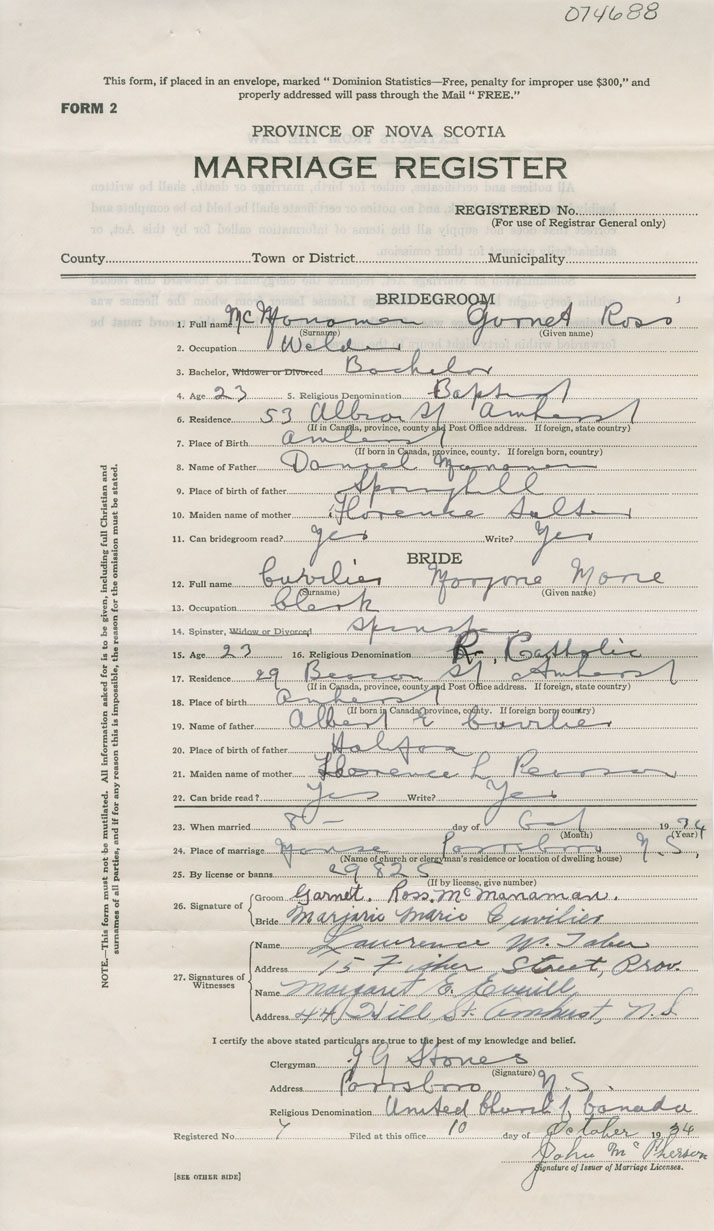 074688
This form, if placed in an envelope, marked "Dominion Statistics—Free, penalty for improper use $300," and
properly addressed will pass through the Mail "FREE."
FORM 2
PROVINCE OF NOVA SCOTIA
MARRIAGE REGISTER
REGISTERED No.
(For use of Registrar General only)
County Town or District Municipality
BRIDEGROOM
1. Full name McManaman Garnet Ross
(Surname) (Given name)
2. Occupation Welder
3. Bachelor, Widower or Divorced Bachelor
4. Age 23 5. Religious Denomination Baptist
6. Residence 53 Albion St Amherst
(If in Canada, province, county and Post Office address. If foreign, state country)
7. Place of Birth Amherst
(If born in Canada, province, county. If foreign born, country)
8. Name of Father Daniel Manaman
9. Place of birth of father Springhill
10. Maiden name of mother Florence Salter
11. Can bridegroom read? Yes Write? Yes
BRIDE
12. Full name Cuvilier Marjorie Marie
(Surname) (Given name)
13. Occupation Clerk
14. Spinster, Widow or Divorced Spinster
15. Age 23 16. Religious Denomination R. Catholic
17. Residence 29 Beacon St Amherst
(If in Canada, province, county and Post Office address. If foreign, state country)
18. Place of birth Amherst
(If born in Canada, province, county. If foreign born, country)
19. Name of father Albert E Cuvilier
20. Place of birth of father Halifax
21. Maiden name of mother Florence L Pearson
22. Can bride read? Yes Write? Yes
23. When married 8 – day of Oct 1934
(Month) (Year)
24. Place of marriage Manse Parrsboro N.S.,
(Name of church or clergyman's residence or location of dwelling house)
25. By license or banns 29825
(If by license, give number)
26. Signature of Groom Garnet. Ross. McManaman.
Bride Marjorie Marie Cuvilier
27. Signatures of Witnesses
Name Lawrence W. Taber
Address 15 Fisher Street, Prov.
Name Margaret E. Everill
Address 44 Hill St. Amherst, N.S.
I certify the above stated particulars are true to the best of my knowledge and belief.
Clergyman J G Stones
(Signature)
Address Parrsboro N.S.
Religious Denomination United Church of Canada
Registered No. 7 Filed at this office 10 day of October 1934
John McPherson
Signature of Issuer of Marriage Licenses.
[SEE OTHER SIDE]
NOTE.—This form must not be mutilated. All information asked for is to be given, including full Christian and
surnames of all parties, and if for any reason this is impossible, the reason for the omission must be stated.